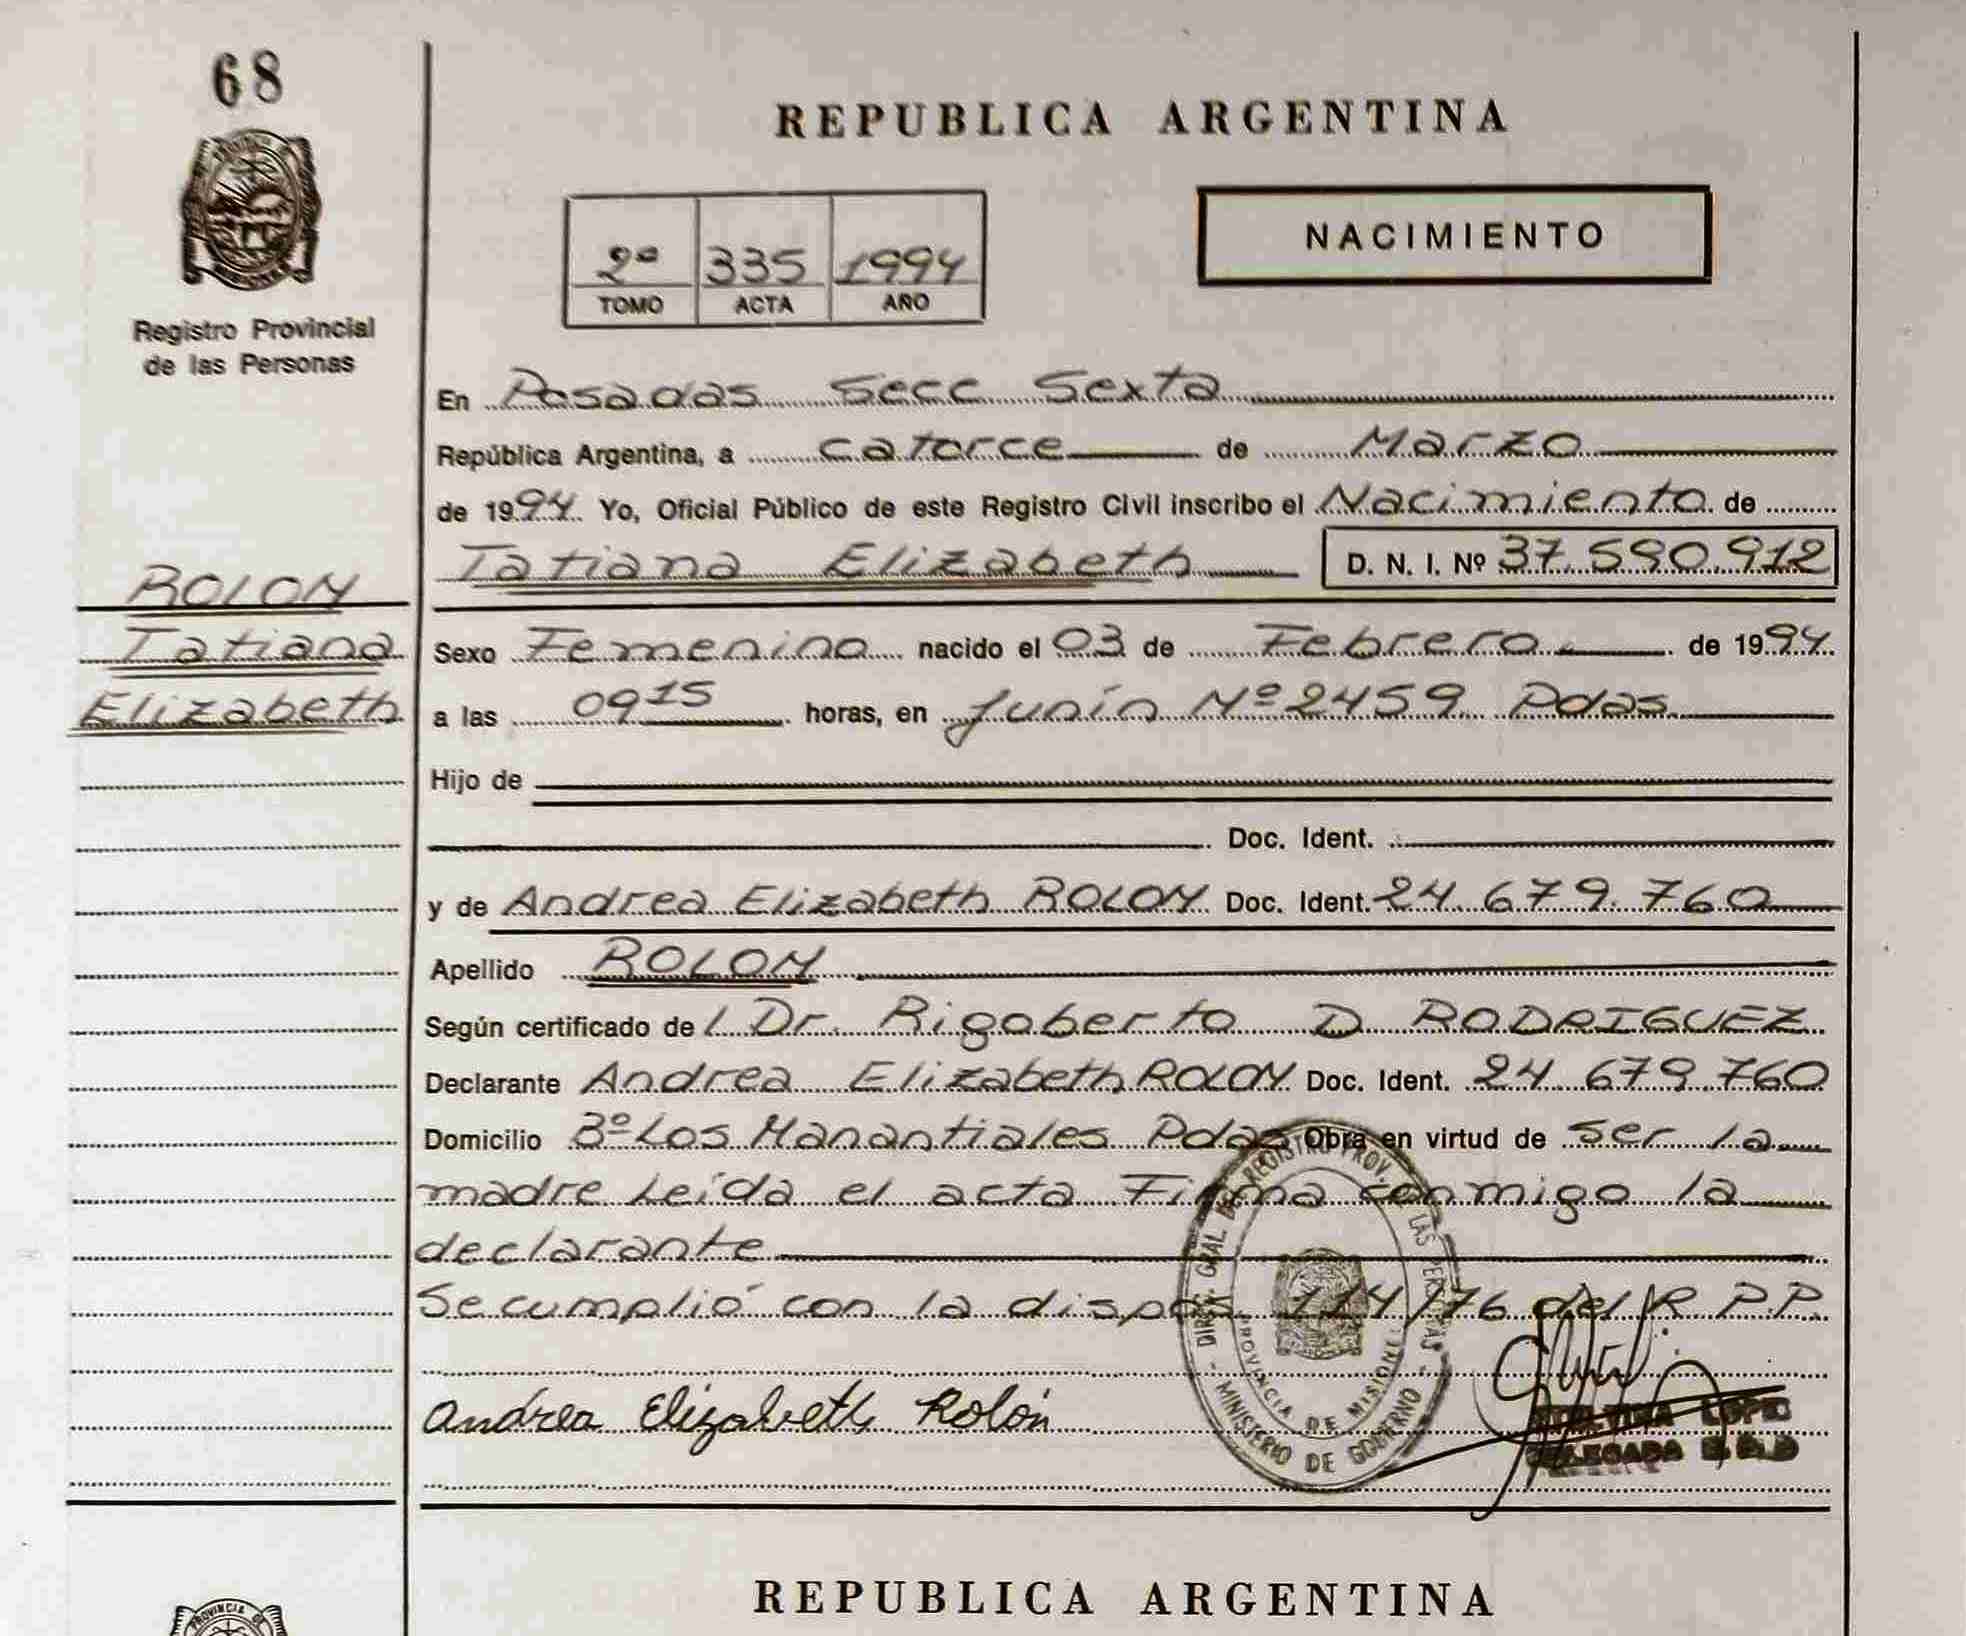 68
REPUBLICA ARGENTINA
NACIMIENTO
2º 335 1994
TOMO ACTA AÑO
Registro Provincial
de las Personas
En Posadas Secc Sexta
República Argentina, a catorce de Marzo
de 1994 Yo, Oficial Público de este Registro Civil inscribo el Nacimiento de
Tatiana Elizabeth D. N. I. Nº 37.590.912
ROLON
Tatiana
Elizabeth
Sexo Femenino nacido el 03 de Febrero de 1994
a las 09 15 horas, en Junín Nº 2459 Pdas.
Hijo de
Doc. Ident.
y de Andrea Elizabeth ROLON Doc. Ident. 24.679.760
Apellido ROLON
Según certificado de Dr. Rigoberto D RODRIGUEZ
Declarante Andrea Elizabeth ROLON Doc. Ident. 24 679 760
Domicilio Bº Los Manantiales Pdas Obra en virtud de ser la
madre Leída el acta Firma conmigo la
declarante
Se cumplió con la dispos. 114/76 del R.P.P.
Andrea Elizabeth Rolón
DIREC. GRAL DE REGISTRO PROV. DE LAS PERSONAS
PROVINCIA DE MISIONES
MINISTERIO DE GOBIERNO
DELEGADA
REPUBLICA ARGENTINA
PROVINCIA DE